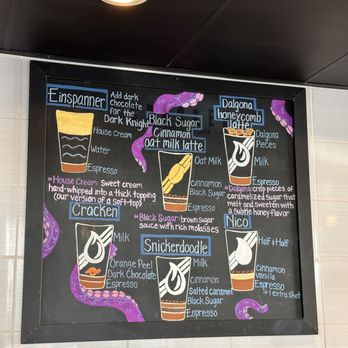 Einspanner
Add dark
chocolate
for the
Dark Knight
House Cream
Water
Espresso
*House Cream: Sweet cream
hand-whipped into a thick topping
(our version of a soft-top)
Black Sugar
Cinnamon
oat milk latte
Oat Milk
Cinnamon
Black Sugar
Espresso
*Black Sugar: brown sugar
sauce with rich molasses
Dalgona
honeycomb
latte
Dalgona
Pieces
Milk
Espresso
*Dalgona: crisp pieces of
caramelized sugar that
melt and sweeten with
a subtle honey flavor
Cracken
Milk
Orange Peel
Dark Chocolate
Espresso
Snickerdoodle
Milk
Cinnamon
Salted caramel
Black Sugar
Espresso
Nico
Half + Half
Cinnamon
Vanilla
Espresso
+ 1 extra shot